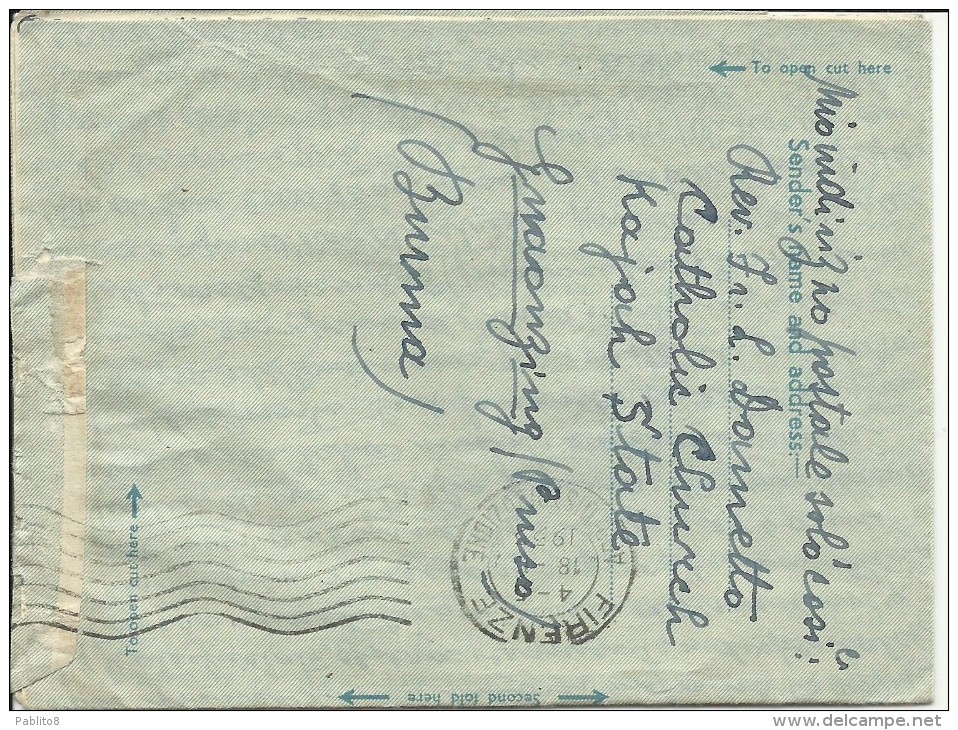 To open cut here
Mio indirizzo postale solo
Sender's name and address:—
Rev. Fr. L. Dometto
Catholic Church
Kajah State
(Burma)
FIRENZE
4 - 18
195
To open cut here
Second fold here
Pablito8
www.delcampe.net